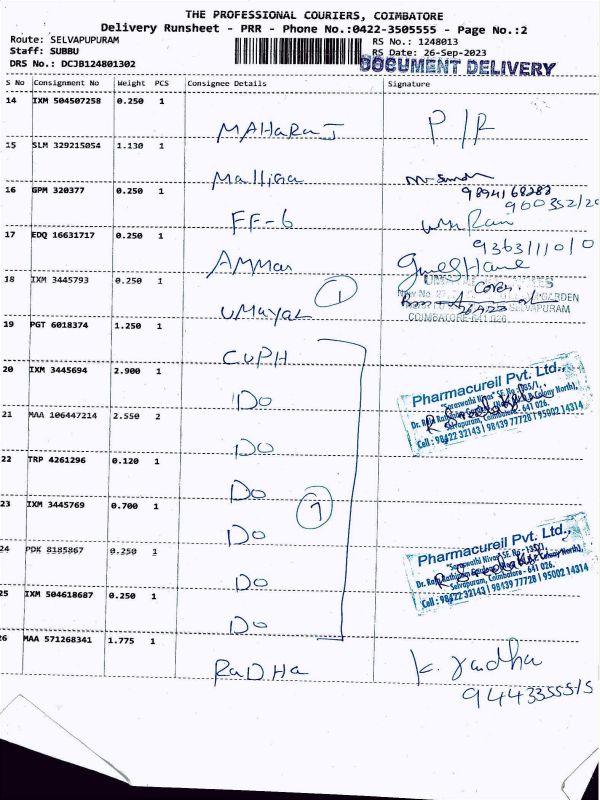 THE PROFESSIONAL COURIERS, COIMBATORE
Delivery Runsheet - PRR - Phone No.:0422-3505555 - Page No.:2
Route: SELVAPUPURAM RS No.: 1248013
Staff: SUBBU RS Date: 26-Sep-2023
DRS No.: DCJB124801302 DOCUMENT DELIVERY
S No Consignment No Weight PCS Consignee Details Signature
14 IXM 504507258 0.250 1
MAHARAJ P/R
15 SLM 329215054 1.130 1
Malliga
9894168283
16 GPM 320377 0.250 1
FF-6
17 EDQ 16631717 0.250 1
Ammar
18 IXM 3445793 0.250 1
UMAYAL 1
COIMBATORE-641 026
19 PGT 6018374 1.250 1
CUPH
20 IXM 3445694 2.900 1
DO
Pharmacureil Pvt. Ltd.,
"Saraswathi Nivas" SF. No. 135/1,
Selvapuram, Coimbatore - 641 026.
Cell : 98422 32143 | 98439 77728 | 95002 14314
21 MAA 106447214 2.550 2
DO
22 TRP 4261296 0.120 1
DO
23 IXM 3445769 0.700 1
DO 7
24 PDK 8185867 0.250 1
DO
Pharmacureil Pvt. Ltd.,
"Saraswathi Nivas" SF. No. 135/1,
Selvapuram, Coimbatore - 641 026.
Cell : 98422 32143 | 98439 77728 | 95002 14314
25 IXM 504618687 0.250 1
DO
26 MAA 571268341 1.775 1
RADHA K. Yardha
9443355515